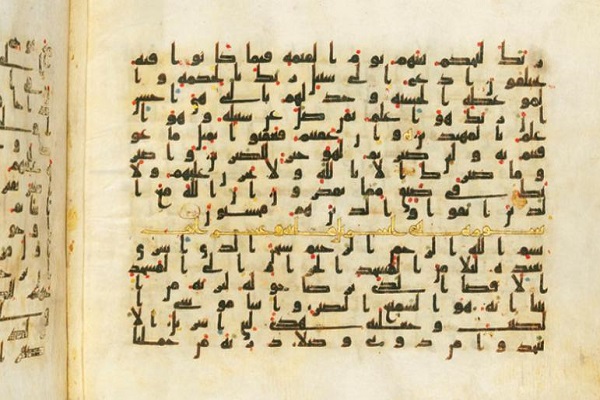 ربك ليحكم بينهم يوم القيمه فيما كانوا فيه
يختلفون ادع الى سبيل ربك بالحكمه وا
لموعظه الحسنه وجدلهم بالتي هي احسن
ان ربك هو اعلم بمن ضل عن سبيله وهو ا
علم بالمهتدين وان عقبتم فعقبوا بمثل ما عو
قبتم به ولئن صبرتم لهو خير للصبرين واصبر
وما صبرك الا بالله ولا تحزن عليهم ولا
تك في ضيق مما يمكرون ان الله مع ا
لذين اتقوا والذين هم محسنون
سوره بني اسرايل
بسم الله الرحمن الرحيم سبحن الذي اسرى
بعبده ليلا من المسجد الحرام الى المسجد
الاقصا الذي بركنا حوله لنريه من ا
يتنا انه هو السميع البصير واتينا موسى ا
لكتب وجعلنه هدى لبني اسرايل الا
تتخذوا من دوني وكيلا ذريه من حملنا